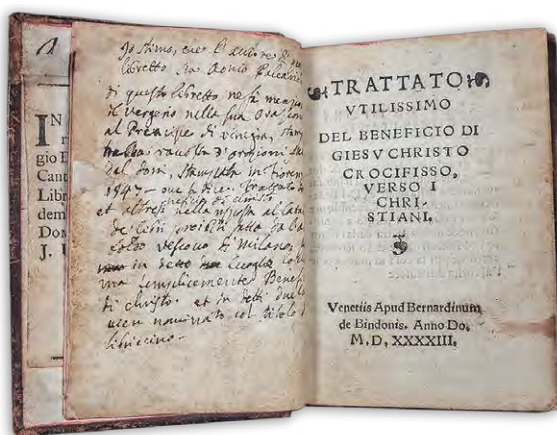 IN
gio
Cant
Libr
dem
J. U
Io stimo, che l'autore di
libretto sia Aonio Paleario
di questo libretto ne fa
il Vergerio nella sua
al Prencipe di Venezia,
raccolta d'orazioni
del Doni, stampata in
1547 - Trattato
beneficio di
et altresi nella risposta al
de libri proibiti fatto da
Vescovo di Milano,
in detto
ma semplicemente Benefi
di christo. et in detti
vien nominato col titolo
libriccino-
TRATTATO
VTILISSIMO
DEL BENEFICIO DI
GIESV CHRISTO
CROCIFISSO,
VERSO I
CHRI-
STIANI.
Venetiis Apud Bernardinum
de Bindonis. Anno Do.
M. D. XXXXIII.